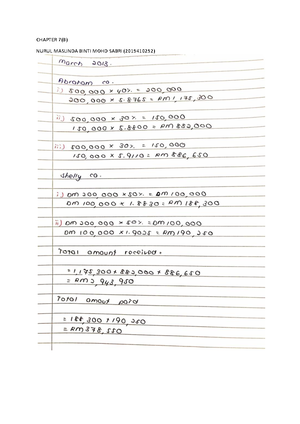 CHAPTER 7(B)
NURUL MASLINDA BINTI MOHD SABRI (2015410252)
March 2018.
Abraham co.
i) 500,000 x 40% = 200,000
200,000 x 5.8765 = RM1,175,300
ii) 500,000 x 30% = 150,000
150,000 x 5.8800 = RM 882,000
iii) 500,000 x 30% = 150,000
150,000 x 5.9110 = RM 886,650
Shelly co.
i) DM 200 000 x 50% = DM 100,000
DM 100,000 x 1.8830 = RM 188,300
ii) DM 200 000 x 50% = DM 100,000
DM 100,000 x 1.9025 = RM 190,250
Total amount received.
= 1,175,300 + 882,000 + 886,650
= RM 2,943,950
Total amout paid
= 188,300 + 190,250
= RM 378,550